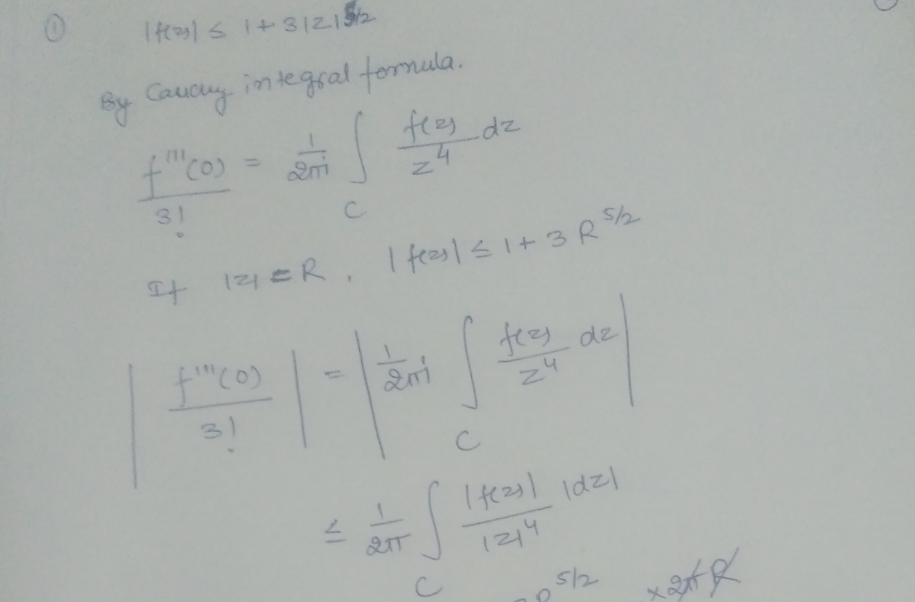 ① |f(z)| ≤ 1 + 3|z|^5/2
By Cauchy integral formula.
f'''(0)/3! = 1/2πi ∫_C f(z)/z^4 dz
If |z| = R, |f(z)| ≤ 1 + 3 R^5/2
|f'''(0)/3!| = |1/2πi ∫_C f(z)/z^4 dz|
≤ 1/2π ∫_C |f(z)|/|z|^4 |dz|
R^5/2 × 2π R